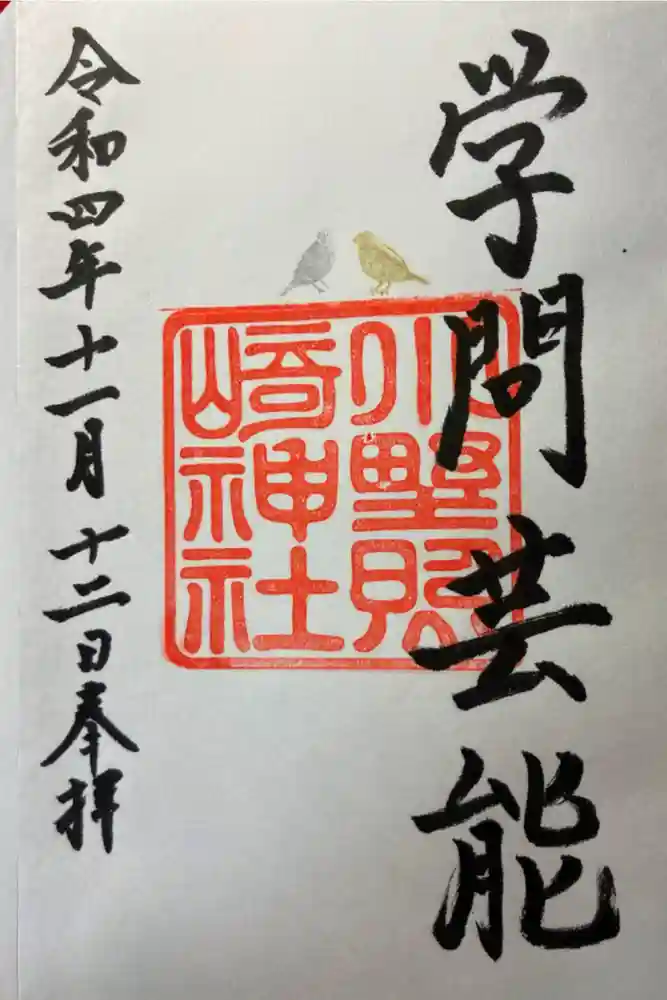 学問芸能
小野照
崎神社
令和四年十一月十二日奉拝